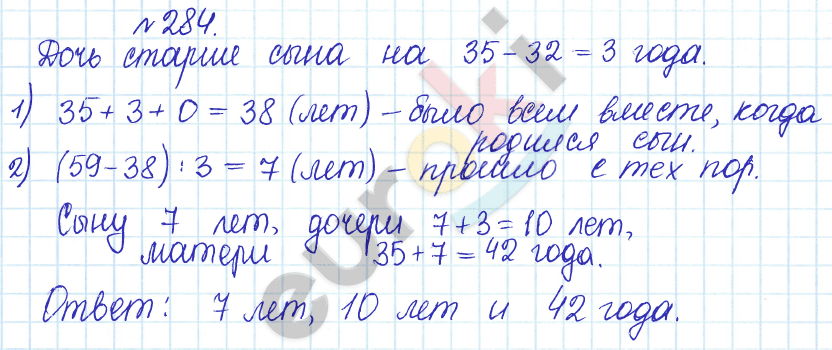 №284.
Дочь старше сына на 35-32=3 года.
1) 35+3+0=38 (лет) - было всем вместе, когда
родился сын.
2) (59-38):3=7 (лет) - прошло с тех пор.
Сыну 7 лет, дочери 7+3=10 лет,
матери 35+7=42 года.
Ответ: 7 лет, 10 лет и 42 года.
euroki